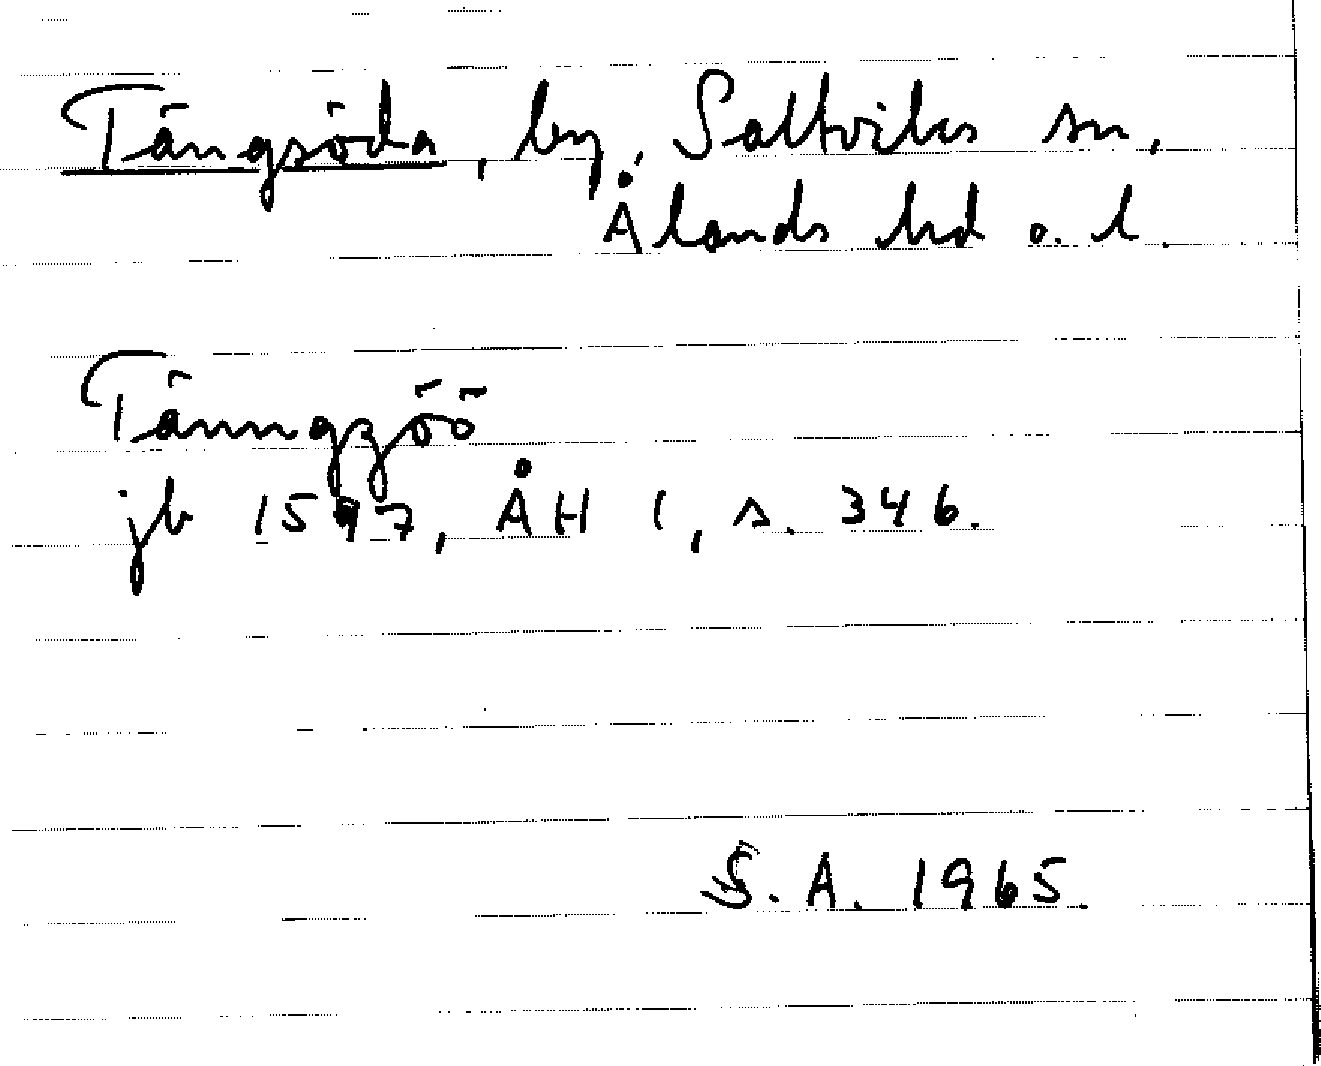 Tängsöda, by, Saltviks sn,
Ålands hd o. l.
Tänngzöö
jb 1597, ÅH 1, s. 346.
S. A. 1965.